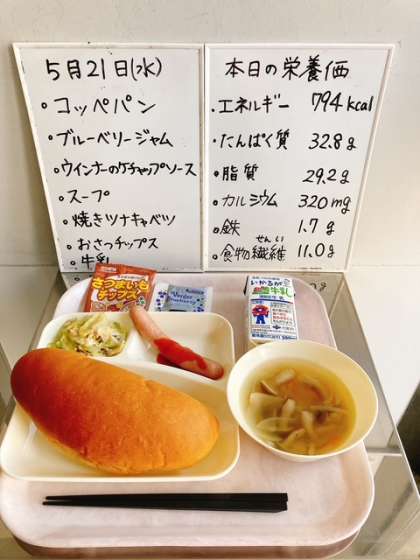 5月21日(水)
・コッペパン
・ブルーベリージャム
・ウインナーのケチャップソース
・スープ
・焼きツナキャベツ
・おさつチップス
・牛乳
本日の栄養価
・エネルギー 794kcal
・たんぱく質 32.8g
・脂質 29.2g
・カルシウム 320mg
・鉄 1.7g
せんい
・食物繊維 11.0g
さつまいも
チップス
いかるが
牛乳